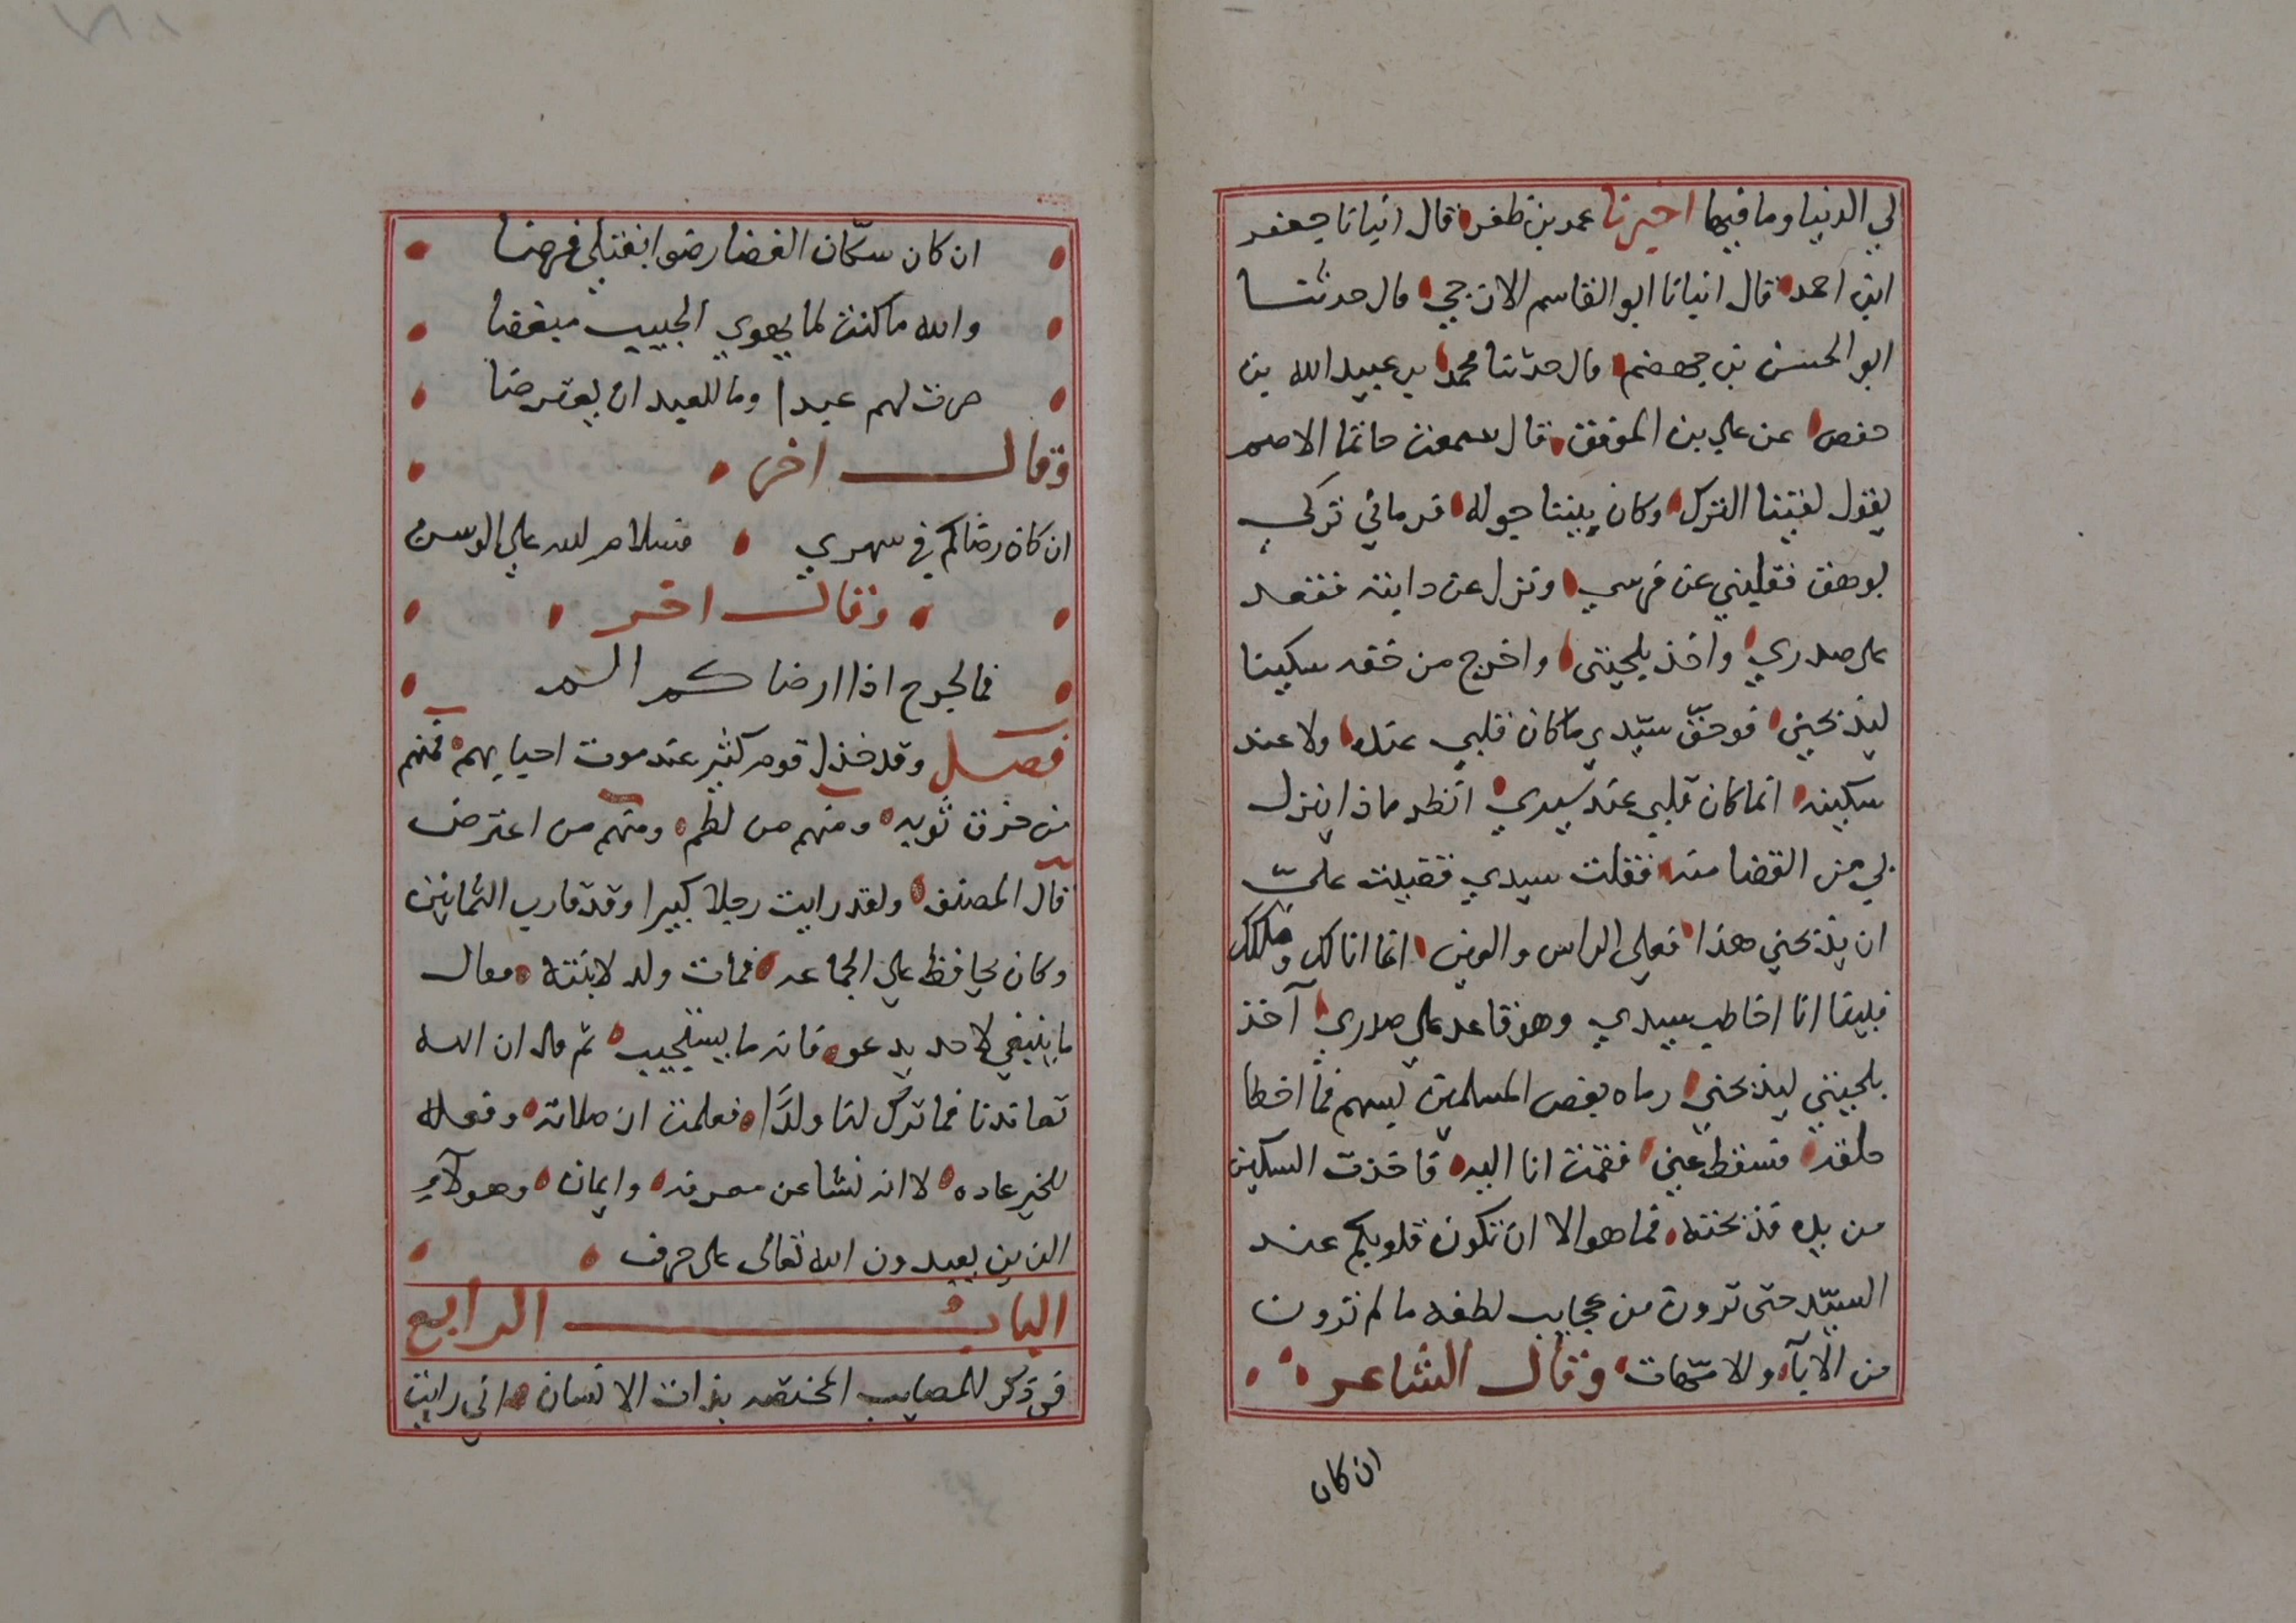 لي الدنيا وما فيها اخبرنا عمر بن ظفر قال انبانا جعفر
ابن احمد قال انبانا ابو القاسم الازجي قال حدثنا
ابو الحسن بن جهضم قال حدثنا محمد بن عبيد الله بن
حفص عن علي بن الموفق قال سمعت حاتما الاصم
يقول لقينا الترك وكان بيننا جوله فرماني تركي
بوهق فقلبني عن فرسي ونزل عن دابته فقعد
على صدري واخذ بلحيتي واخرج من خفه سكينا
ليذبحني فوحق سيدي ما كان قلبي عنده ولا عند
سكينه انما كان قلبي عند سيدي انظر ماذا ينزل
بي من القضا منه فقلت سيدي قضيت عليّ
ان يذبحني هذا فعلى الراس والعين انما انا لك وملكك
فبينا انا اخاطب سيدي وهو قاعد على صدري آخذ
بلحيتي ليذبحني رماه بعض المسلمين بسهم فما اخطا
حلقه فسقط عني فقمت انا اليه فاخذت السكين
من يده فذبحته فما هو الا ان تكون قلوبكم عند
السيّد حتى ترون من عجايب لطفه ما لم ترون
من الابآء والامّهات وقال الشاعر
ان كان
ان كان سكّان الغضا رضوا بقتلي فرضا
والله ما كنت لما يهوي الحبيب مبغضا
صرت لهم عبدا وما للعبد ان يعترضا
وقال اخر
ان كان رضاكم في سهري فسلام لله علي الوسن
وقال اخر
فما لجرح اذا ارضاكم الم
فصل وقد خذل قوم كثير عند موت احبابهم فمنهم
من خرق ثوبه ومنهم من لطم ومنهم من اعترض
قال المصنف ولقد رايت رجلا كبيرا وقد قارب الثمانين
وكان يحافظ علي الجماعه فمات ولد لابنته فقال
ما ينبغي لاحد يدعو فانه ما يستجيب ثم قال ان الله
تعاندنا فما ترك لنا ولدًا فعلمت ان صلاته وفعله
للخير عاده لا انه نشا عن معرفه وايمان وهولآء
الذين يعبدون الله تعالى على حرف
الباب الرابع
في ذكر للمصايب المختصه بذات الانسان اني رايت